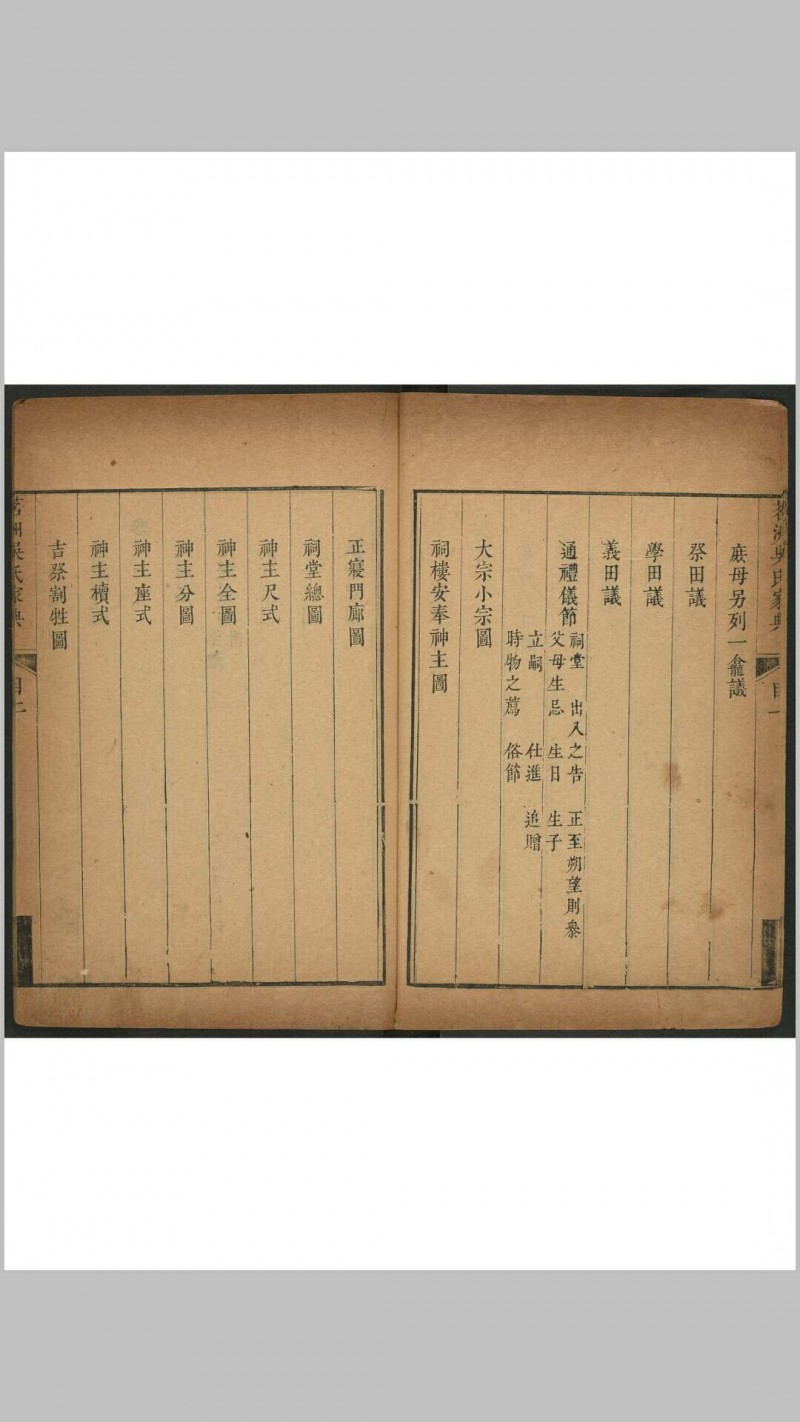 茗洲吳氏家典 目一
庶母另列一龕議
祭田議
學田議
義田議
通禮儀節
祠堂 出入之告 正至朔望則叅
父母生忌 生日 生子
立嗣 仕進 追贈
時物之薦 俗節
大宗小宗圖
祠樓安奉神主圖
正寢門廊圖
祠堂總圖
神主尺式
神主全圖
神主分圖
神主座式
神主櫝式
吉祭割牲圖
茗洲吳氏家典 目二